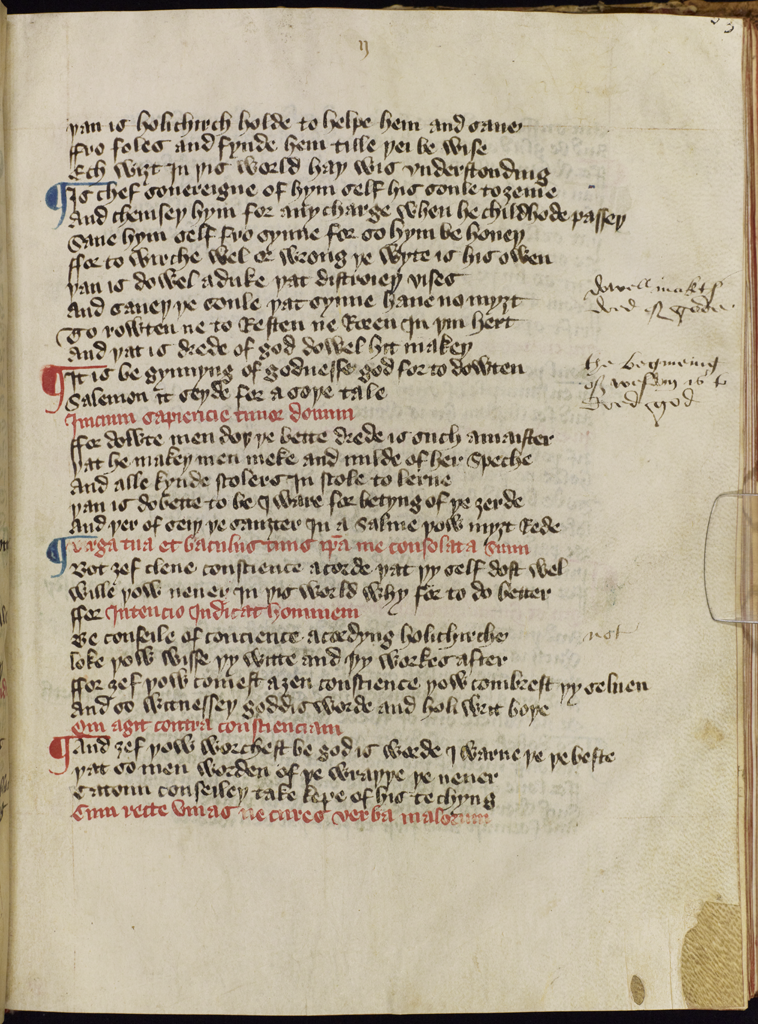 ij
þan is holichirch holde to helpe hem and saue
ffro foles and fynde hem tille þei be wise
Ech wiȝt in þis world haþ wis vnderstonding
¶ Is chef souereigne of hym self his soule to ȝeme
And cheuisey hym for any charge when he childhode passeþ
Saue hym self fro synne for so hym be houeþ
ffor to wirche wel or wrong þe wyte is his owen
þan is dowel a duke þat distroieþ vises
And saueþ þe soule þat synne haue no myȝt
To rowten ne to Resten ne Roten in þin hert
And þat is drede of god dowel hit makeþ
¶ It is be gynnyng of godnesse god for to dowten
Salemon it seyde for a soþe tale
Inicium sapiencie timor domini
ffor dowte men doþ þe bette drede is such a maister
þat he makeþ men meke and milde of her speche
And alle kynde scolers in scole to lerne
þan is dobette to be I ware for betyng of þe ȝerde
And þer of seiþ þe sauȝter in a salme þow myȝt Rede
¶ Virga tua et baculus tuus ipsa me consolata sunt
Bot ȝef clene conscience acorde þat þy self dost wel
Wille þow neuer in þis world why for to do better
ffor Intencio Iudicat hominem
Be conseile of concience acordyng holichirche
loke þow wisse þy witte and þy workes after
ffor ȝef þow comest aȝen conscience þow combrest þy seluen
And so witnesseþ goddis worde and holi writ boþe
Qui agit contra conscienciam
¶ And ȝef þow worchest be god is worde I warne þe þe beste
þat so men worden of þe wrappe þe neuer
Catoun conseileþ take kepe of his techyng
Cum recte viuas ne cures verba malorum
dowell makth
dred of godde
the begineing
of wesdom is to
dred god
not
3